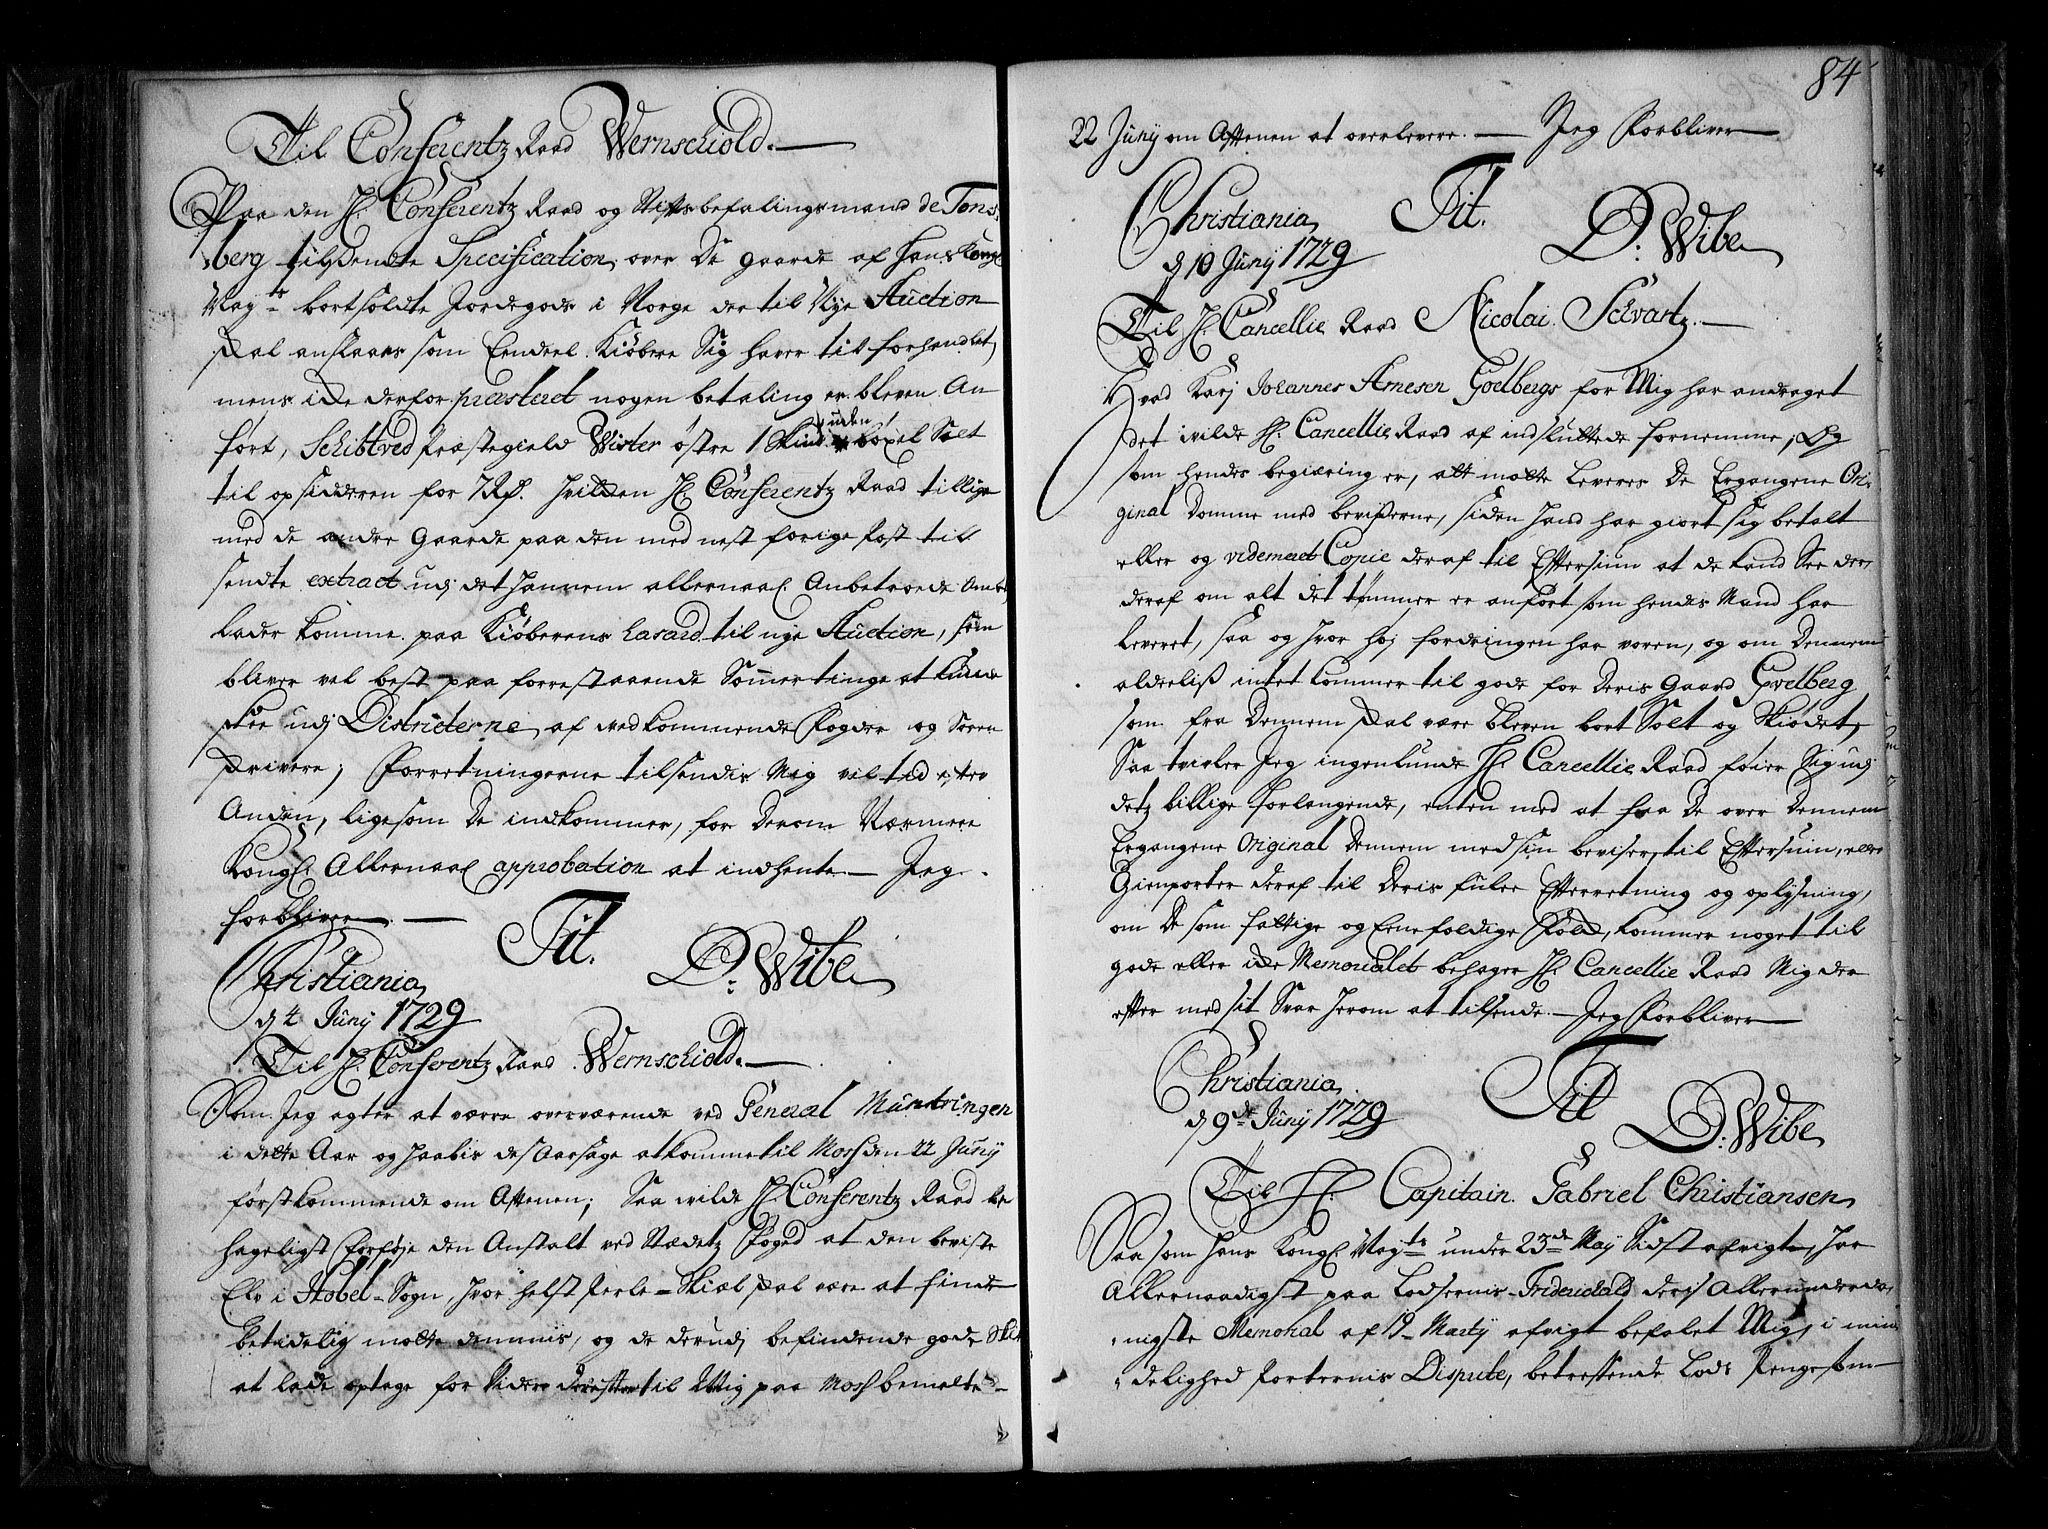 Til Conferentz Raad Wernschiold.
Paa den H. Conferentz Raad og Stiftsbefalingsmand de Tons
berg tilsendte Specification over De gaarde af Hans Kongl
May.ts bortsoldte Jordegods i Norge der til Nye Auction
skal anslaaes som Eendeel Kiøbere Sig haver til forhandlet,
mens icke derfor præsteret nogen betaling er bleven An
ført, Schibtved Præstegield Wister østre 1 Skind uden boxel Solt
til opsidderen for 7 Rd. Hvilcken H. Conferentz Raad tillige
med de andre Gaarde paa den med nest forige Post til
sendte extract udj det hannem allernaad. Anbetroede Ambt
lader komme paa Kiøberens hasard til nye Auction, som
bliver vel best paa forrestaaende Sommertinge at kunde
skee udj Districterne af vedkommende Fogder og Soren
skrivere; Forretningerne tilsendis Mig vil tid efter
Anden, ligesom De indkommer, for Derom Nærmere
Kongl. Allernaad. approbation at indhente — Jeg
forbliver —
Tit.
D. Wibe
Christiania
d 4 Juny 1729
Til H. Conferentz Raad Wernschiold.
Som Jeg agter at være overværende ved General Mündtringen
i dette Aar og haabis des Aarsage at komme til Moss den 22 Juny
førstkommende om Aftenen; Saa wilde H. Conferentz Raad be
hageligst forføje den Anstalt ved Stædetz Foged at den beviste
Elv i Hobel-Sogn, hvor helst Perle-Skiæl skal være at finde
betidelig motte demmis, og de derudj befindende gode Skiæl
at lade optage for Videre derefter til Mig paa Moss bemelte
84
22 Juny om Aftenen at overlevere. — Jeg Forbliver
Tit.
Christiania
D. Wibe
d 10 Juny 1729
Til H. Cancellie Raad Nicolai Schvartz.
Hvad Karj Johannes Arnesen Goelbergs for Mig har andraget
det wilde H. Cancellie Raad af indsluttede fornemme, Og
som hendes begiæring er, att motte Leveres De Ergangene Ori-
ginal Domme med beviserne, siden hand har giort sig betalt
eller og videmeret Copie deraf til Eftersiun at de kand See der,
deraf om alt det tømmer er anført som hendes Mand har
leveret, saa og hvor høj fordringen har voren, og om Dennem
alderliß intet kommer til gode for Deris Gaard Goelberg
som fra Dennem skal være bleven bort Solt og Skiødet,
Saa tvivler Jeg ingenlunde H. Cancellie Raad føier Sig udj
detz billige Forlangende, enten med at faa De over Dennem
Ergangene Original Dommem med sin beviser, til Eftersiun, eller
Gienparter deraf til Deris fulde Efterretning og oplysning,
om De som fattige og Eenefoldige Folck, kommer noget til
gode eller icke Memorialet behager H. Cancellie Raad Mig der
efter med sit Svar herom at tilsende — Jeg Forbliver
Christiania
Tit
d 9de Juny 1729
D. Wibe
Til H. Capitain Gabriel Christiansen
Saa som Hans Kongl. May.ts under 23de May Sidst afvigte, har
Allernaadigst paa Lodsernis Friderichald deris Allerunderda-
nigste Memorial af 19 Marty afvigt befalet Mig, i min-
delighed Parternis Dispute, betreffende Lods Pengestm